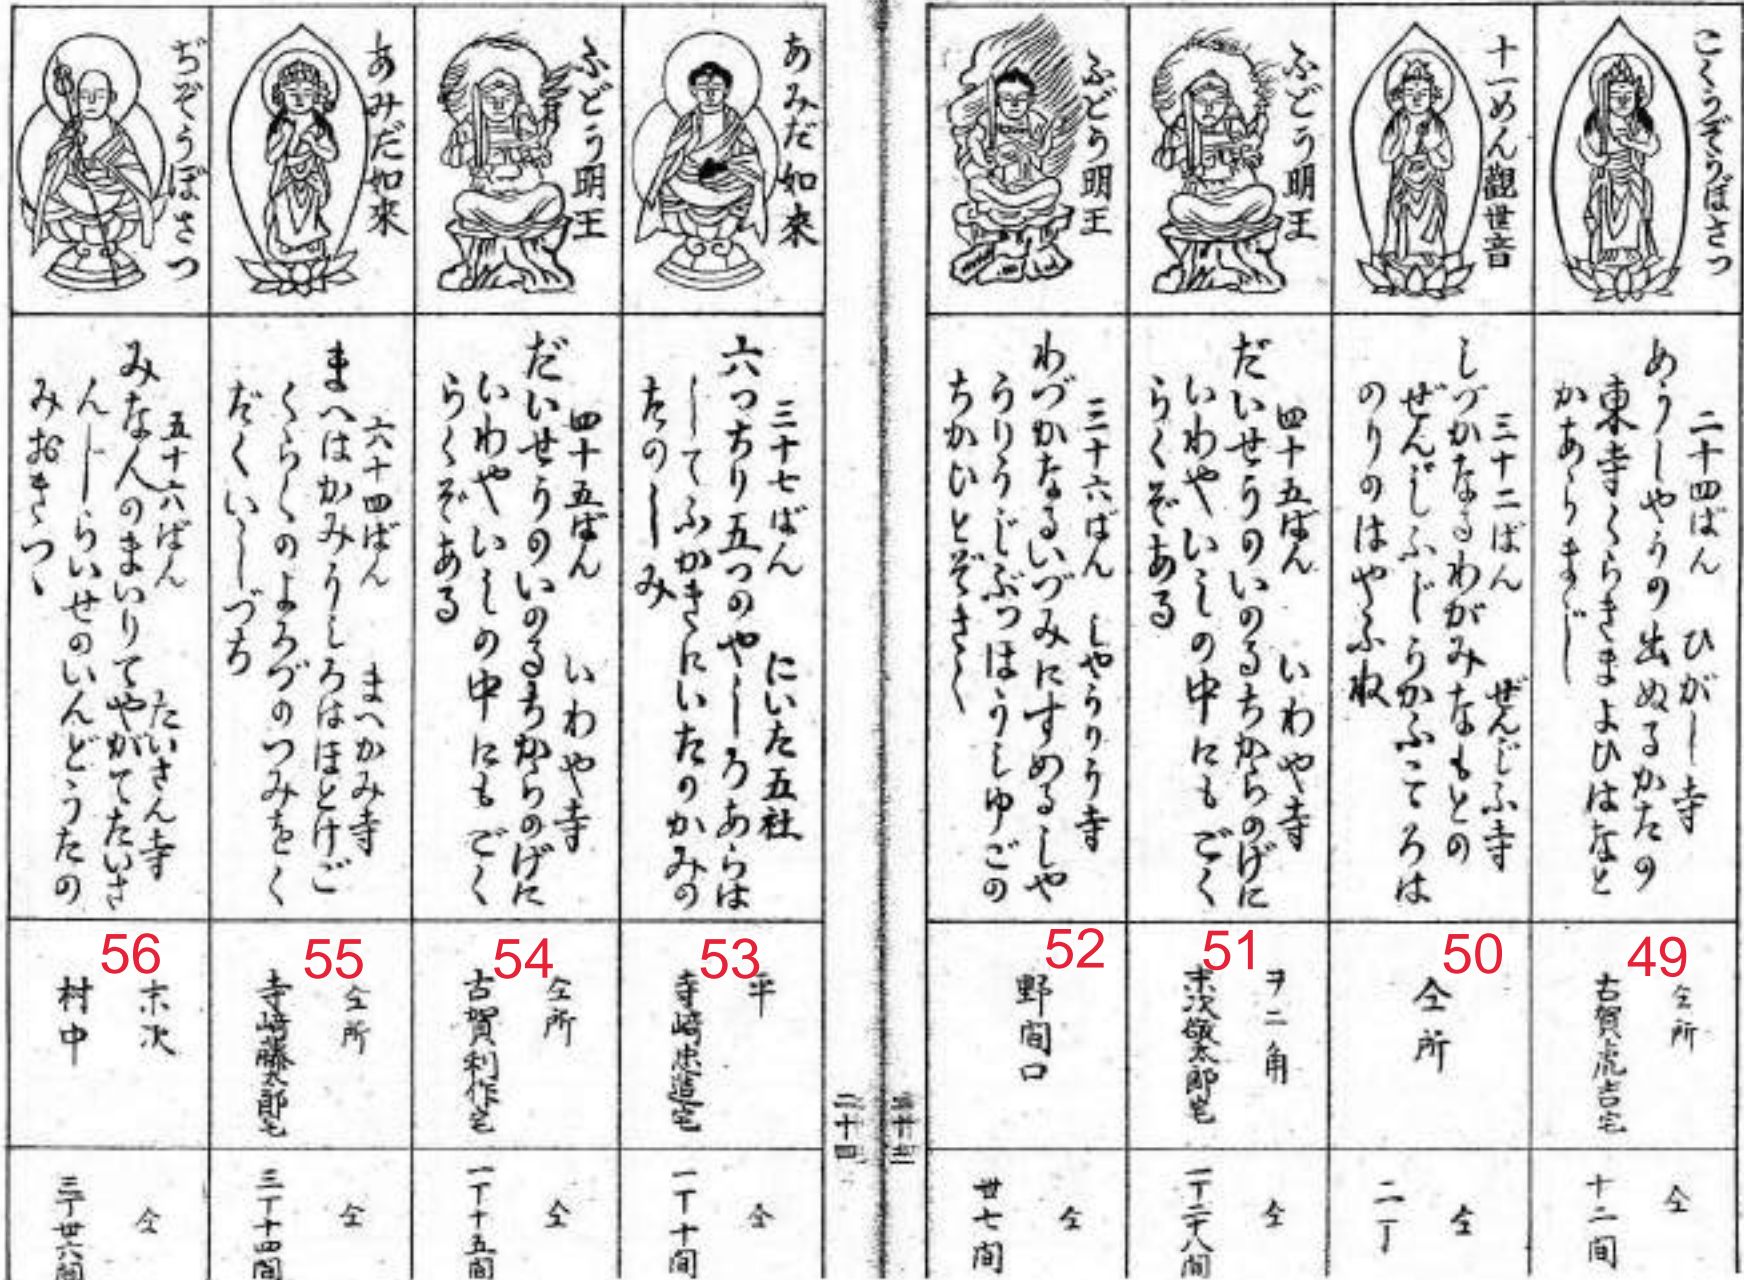 こくうぞうぼさつ
二十四ばん ひがし寺
めうしやうの出ぬるかたの
東寺くらきまよひはなと
かあらまじ
49
仝所
古賀虎吉宅
仝
十二間
十一めん觀世音
三十二ばん ぜんじふ寺
しづかなるわがみなもとの
ぜんじふじうかふこころは
のりのはやふね
50
仝所
仝
二丁
ふどう明王
四十五ばん いわや寺
だいせうのいのるちからのげに
いわやいしの中にもごく
らくぞある
51
ヲニ角
末次敬太郎宅
仝
一丁二十八間
ふどう明王
三十六ばん しやうりう寺
わづかなるいづみにすめるしや
うりうじぶつほうしゆごの
ちかひとぞきく
52
野間口
仝
廿七間
三十三
三十四
あみだ如來
三十七ばん にいた五社
六つちり五つのやしろあらは
してふかきにいたのかみの
たのしみ
53
平
寺崎忠造宅
仝
一丁十間
ふどう明王
四十五ばん いわや寺
だいせうのいのるちからのげに
いわやいしの中にもごく
らくぞある
54
仝所
古賀利作宅
仝
一丁十五間
あみだ如來
六十四ばん まへかみ寺
まへはかみうしろはほとけご
くらくのよろづのつみをく
だくいしづち
55
仝所
寺崎藤太郎宅
仝
三丁十四間
ぢぞうぼさつ
五十六ばん たいさん寺
みな人のまいりてやがてたいさ
んじらいせのいんどうたの
みおきつゝ
56
末次
村中
仝
三丁廿六間